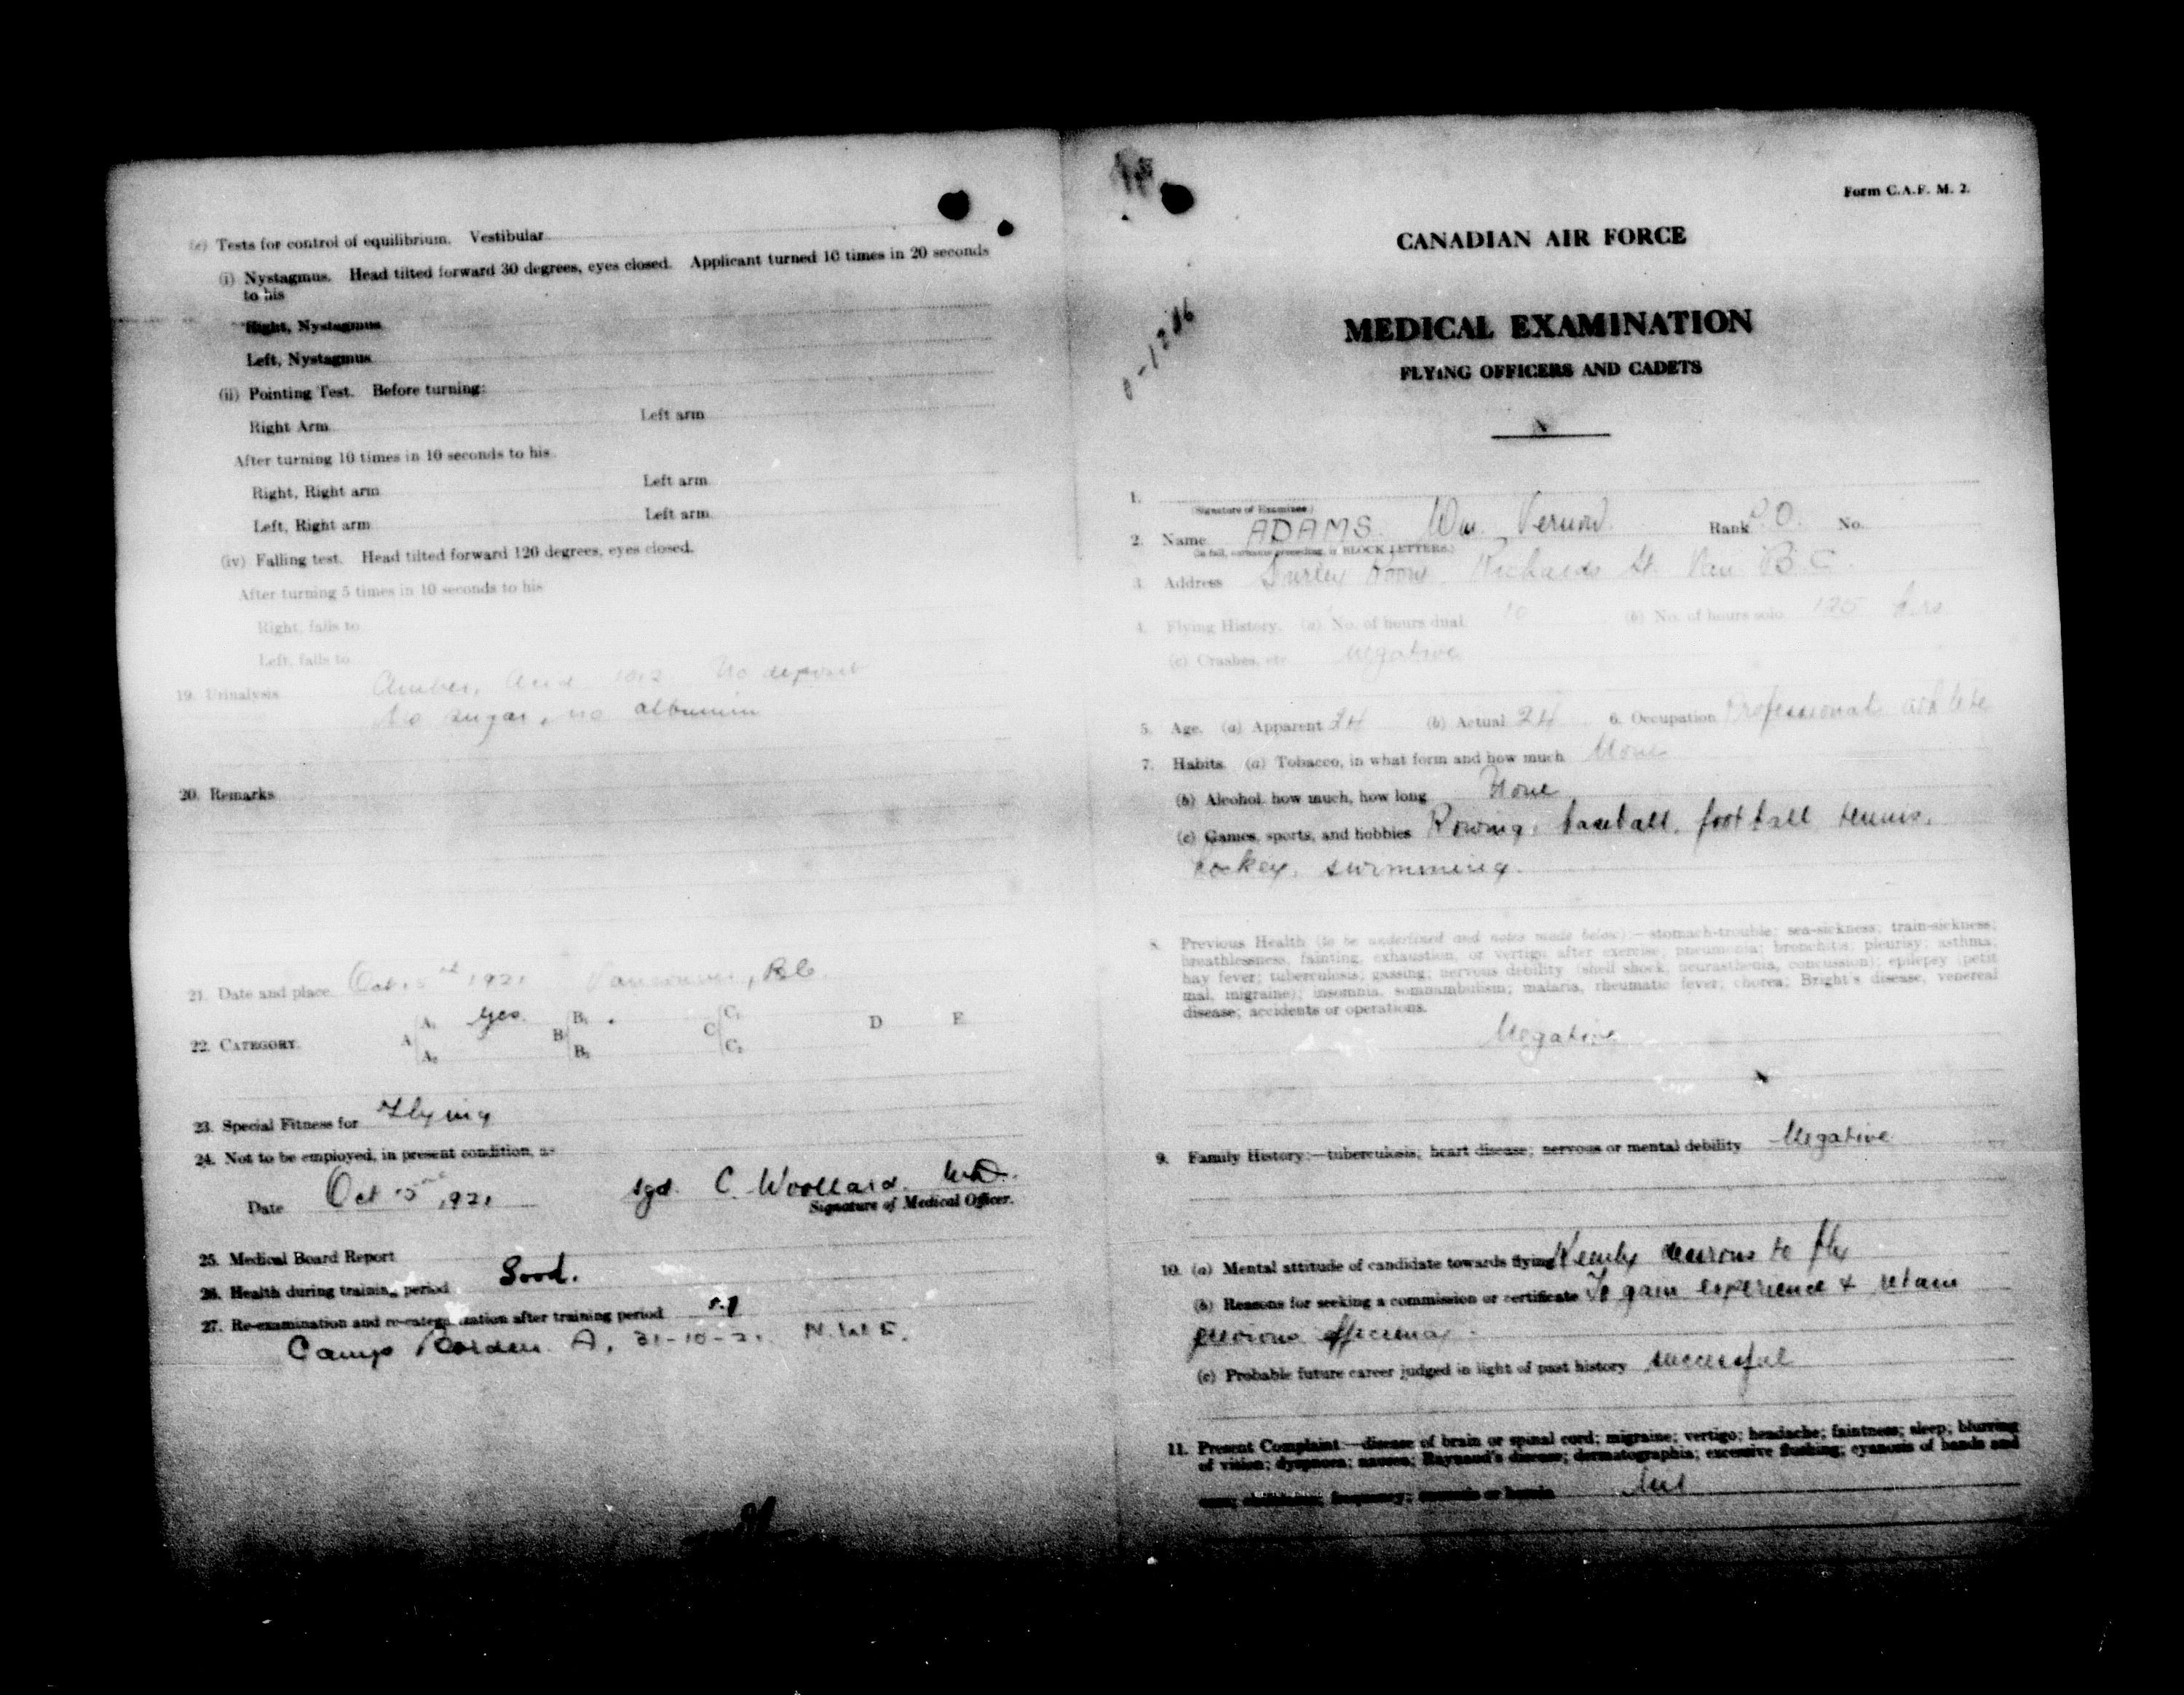 (e) Tests for control of equilibrium. Vestibular
(i) Nystagmus. Head tilted forward 30 degrees, eyes closed. Applicant turned 10 times in 20 seconds
to his
Right, Nystagmus
Left, Nystagmus
(ii) Pointing Test. Before turning:
Right Arm Left arm
After turning 10 times in 10 seconds to his
Right, Right arm Left arm
Left, Right arm Left arm
(iv) Falling test. Head tilted forward 120 degrees, eyes closed.
After turning 5 times in 10 seconds to his
Right, falls to
Left, falls to
19. Urinalysis Amber, Acid 1012 No deposit
No sugar, no albumin
20. Remarks
21. Date and place Oct. 5 1921 Vancouver, B.C.
22. CATEGORY A A1 yes. A2 B B1 B2 C C1 C2 D E
23. Special Fitness for Flying
24. Not to be employed, in present condition, as
Date Oct 5 1921 sgd. C. Woollard. M.D.
Signature of Medical Officer.
25. Medical Board Report
26. Health during training period Good.
27. Re-examination and re-categorization after training period
Camp Borden A. 31-10-21
Form C.A.F. M. 2.
CANADIAN AIR FORCE
MEDICAL EXAMINATION
FLYING OFFICERS AND CADETS
1.
(Signature of Examinee)
2. Name ADAMS. Wm. Vernon. Rank No.
(In full, surname preceding, in BLOCK LETTERS.)
3. Address Richards St. Van B.C.
4. Flying History. (a) No. of hours dual 10 (b) No. of hours solo 125 hrs
(c) Crashes, etc Negative
5. Age. (a) Apparent 24 (b) Actual 24 6. Occupation Professional athlete
7. Habits (a) Tobacco, in what form and how much None
(b) Alcohol how much, how long None
(c) Games, sports, and hobbies Rowing, baseball, football tennis,
hockey, swimming.
8. Previous Health (to be underlined and notes made below):—stomach-trouble; sea-sickness; train-sickness;
breathlessness, fainting, exhaustion, or vertigo after exercise; pneumonia; bronchitis; pleurisy; asthma;
hay fever; tuberculosis; gassing; nervous debility (shell shock, neurasthenia, concussion); epilepsy (petit
mal, migraine); insomnia, somnambulism; malaria, rheumatic fever; chorea; Bright's disease, venereal
disease; accidents or operations.
Negative
9. Family History:—tuberculosis; heart disease; nervous or mental debility Negative
10. (a) Mental attitude of candidate towards flying Keenly desirous to fly
(b) Reasons for seeking a commission or certificate To gain experience & retain
previous efficiency.
(c) Probable future career judged in light of past history successful
11. Present Complaint:—disease of brain or spinal cord; migraine; vertigo; headache; faintness; sleep; blurring
of vision; dyspnoea; nausea; Raynaud's disease; dermatographia; excessive flushing; cyanosis of hands and
Nil